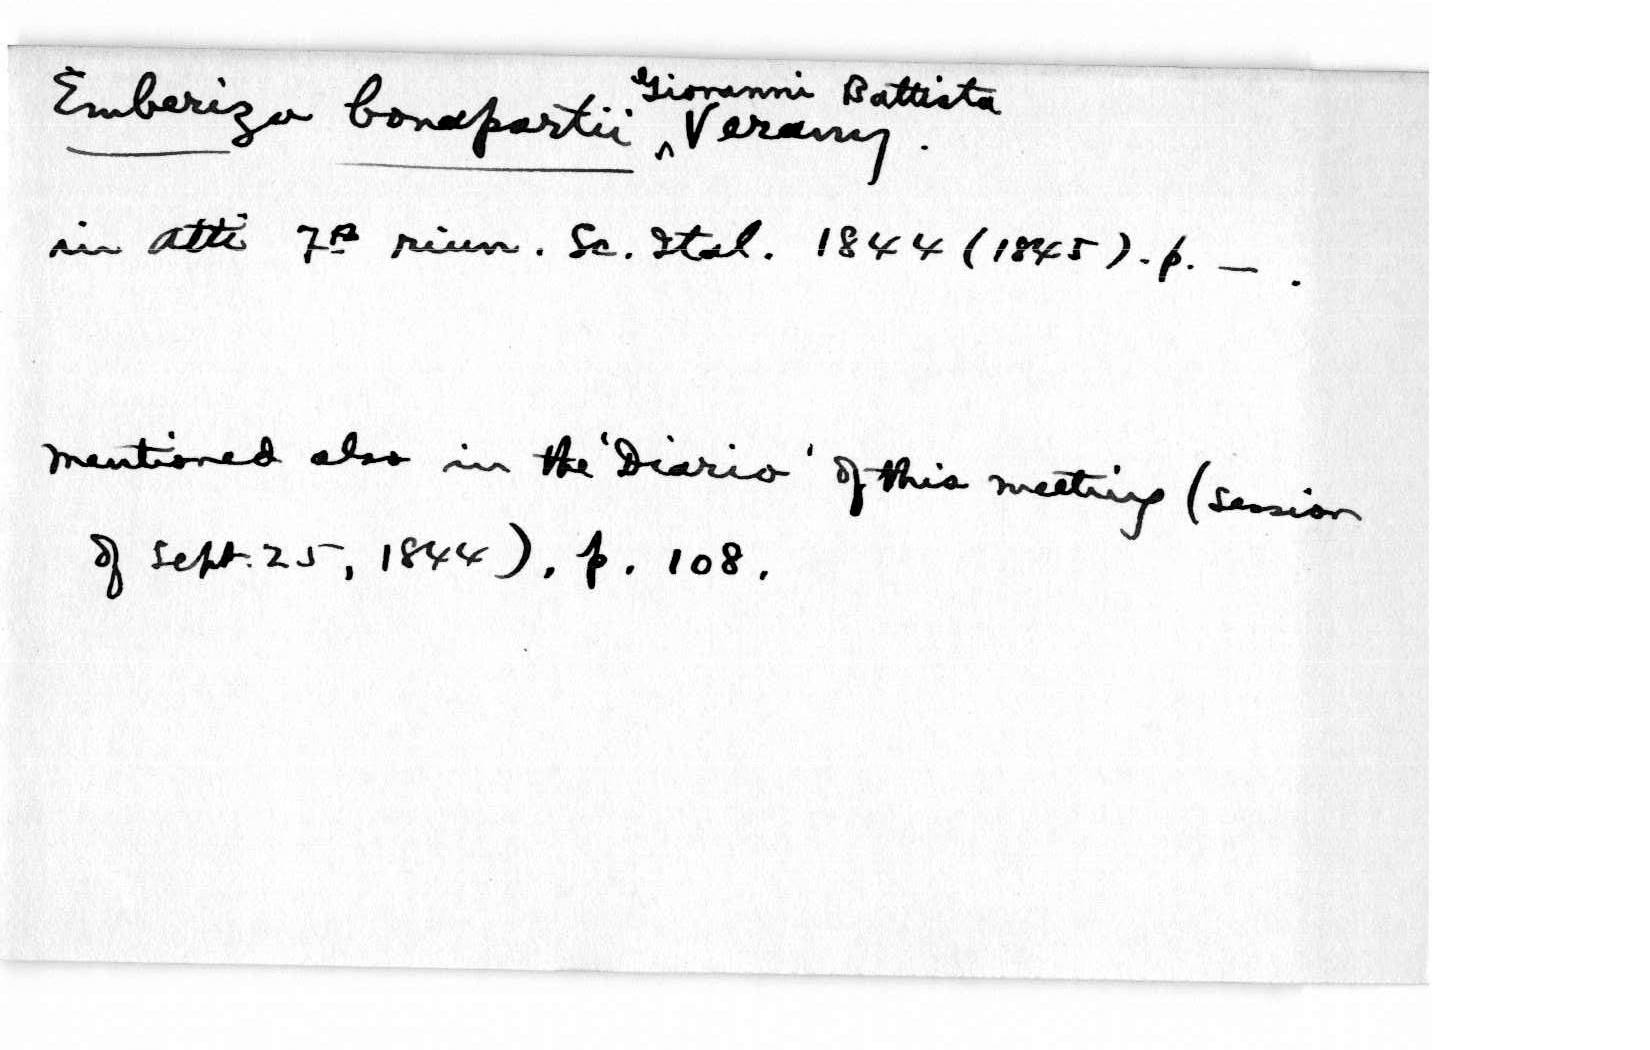 Emberiza bonapartii ‸ Giovanni Battista Verany.
in Atti 7ª riun. Sc. Ital. 1844 (1845). p. — .
mentioned also in the 'Diario' of this meeting (session
of Sept. 25, 1844), p. 108.